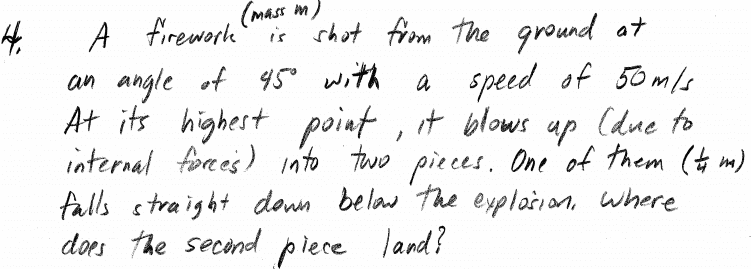 4. A firework (mass m) is shot from the ground at
an angle of 45° with a speed of 50 m/s
At its highest point, it blows up (due to
internal forces) into two pieces. One of them (1/4 m)
falls straight down below the explosion. Where
does the second piece land?